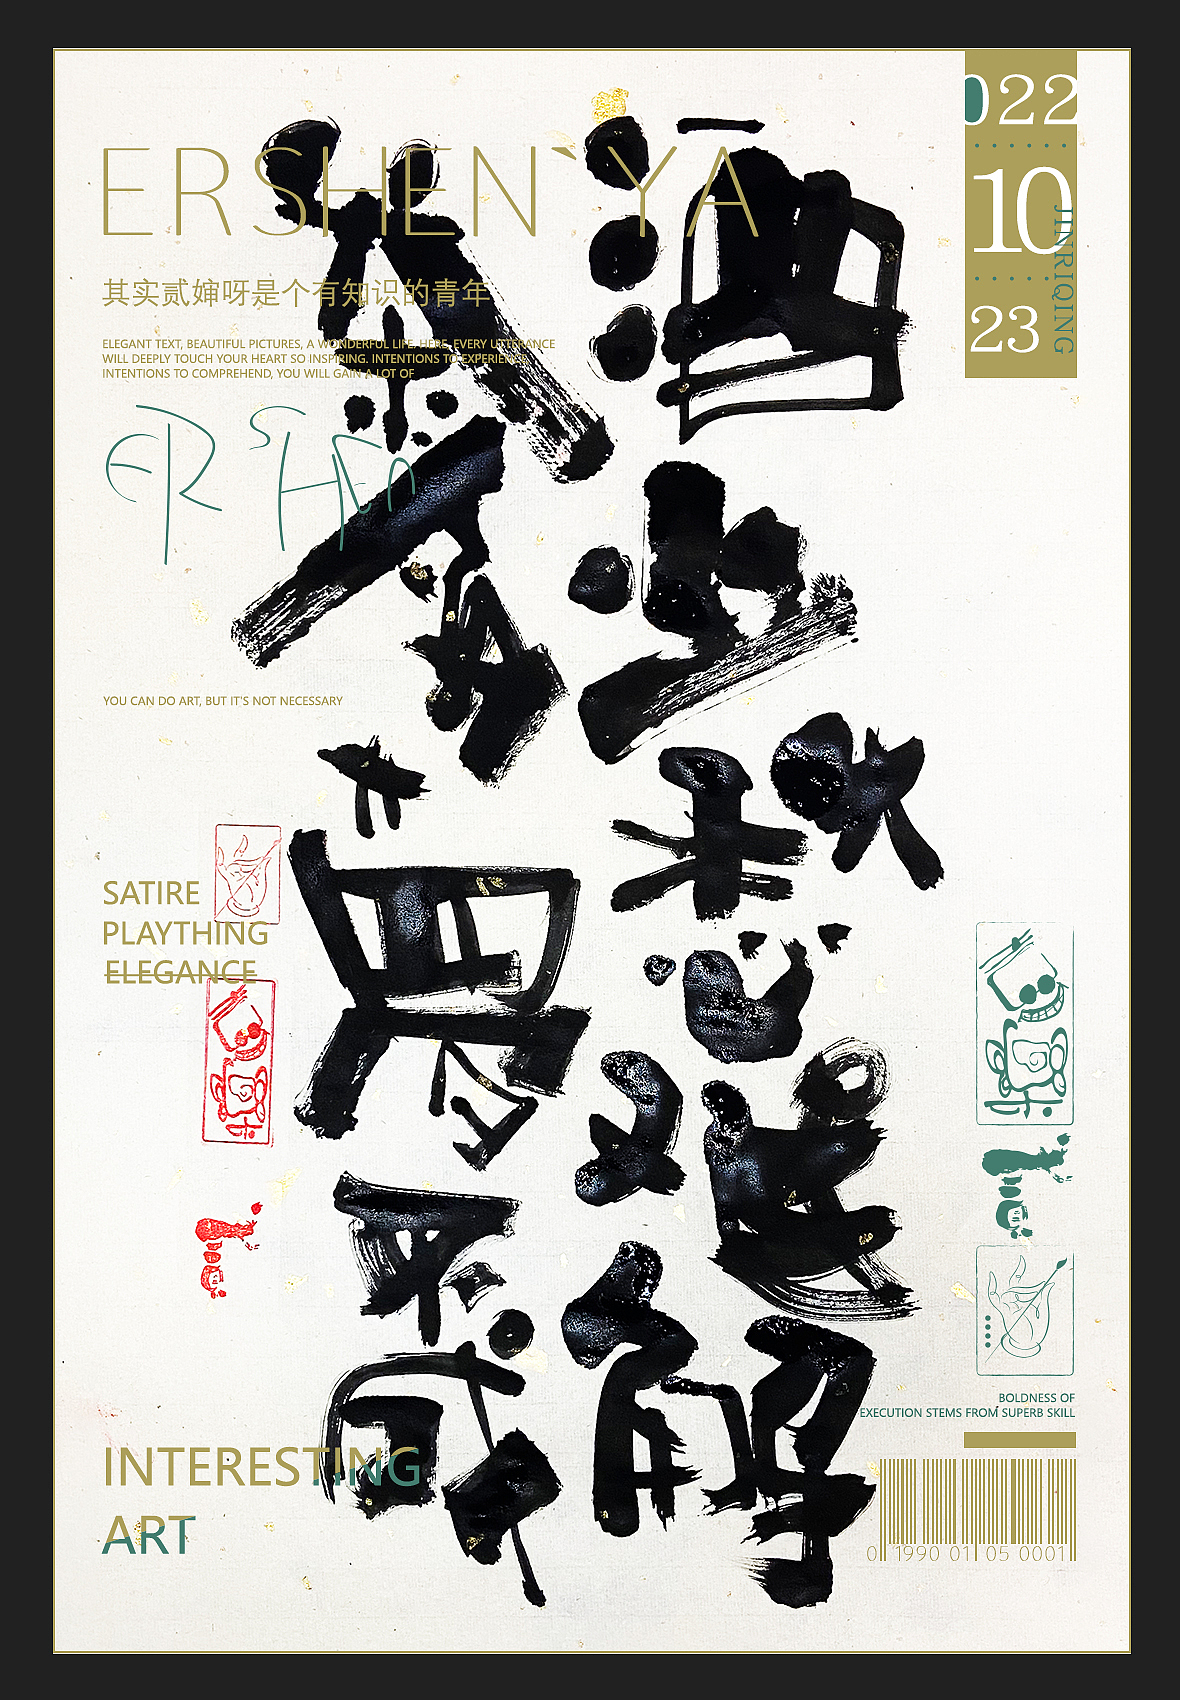 022
10
23
JINRIQING
ERSHEN`YA
其实贰婶呀是个有知识的青年
ELEGANT TEXT, BEAUTIFUL PICTURES, A WONDERFUL LIFE. HERE, EVERY UTTERANCE
WILL DEEPLY TOUCH YOUR HEART SO INSPIRING. INTENTIONS TO EXPERIENCE,
INTENTIONS TO COMPREHEND, YOU WILL GAIN A LOT OF
ER SHEN
酒少愁难解
茶多夢不成
YOU CAN DO ART, BUT IT'S NOT NECESSARY
SATIRE
PLAYTHING
ELEGANCE
INTERESTING
ART
BOLDNESS OF
EXECUTION STEMS FROM SUPERB SKILL
0 1990 01 05 0001